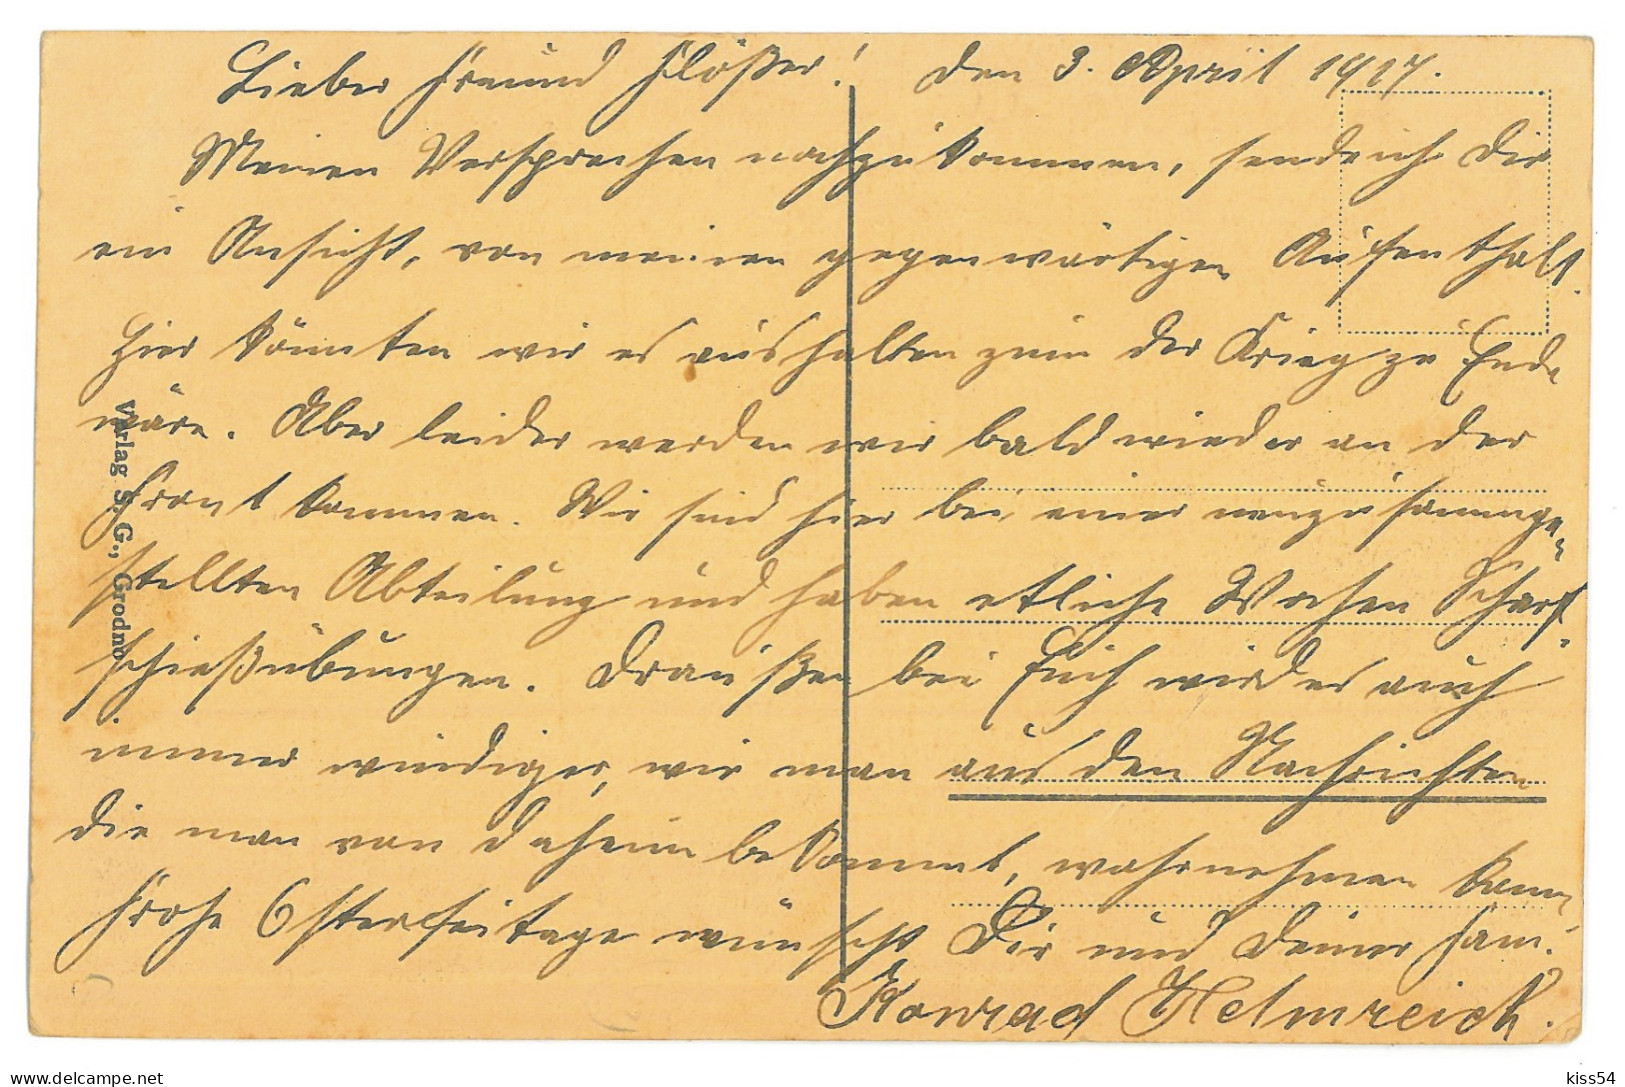 Lieber Freund Flößer! Den 3. April 1917.
Meinen Versprechen nachzukommen, sende ich Dir
ein Ansicht, von meinen gegenwärtigen Aufenthalt.
Hier könnten wir es aushalten zum der Krieg zu Ende
wäre. Aber leider werden wir bald wieder an der
Front kommen. Wir sind hier bei einer neuzusammge-
stellten Abteilung und haben etliche Wochen Scharf-
schießübungen. Draußen bei Euch wird es auch
immer windiger, wir man aus den Nachrichten
die man von daheim bekommt, wahrnehmen kann,
Frohe Osterfeitage wünscht Dir und Deiner Fam.
Konrad Helmreich.
Verlag S. G., Grodno
kiss54